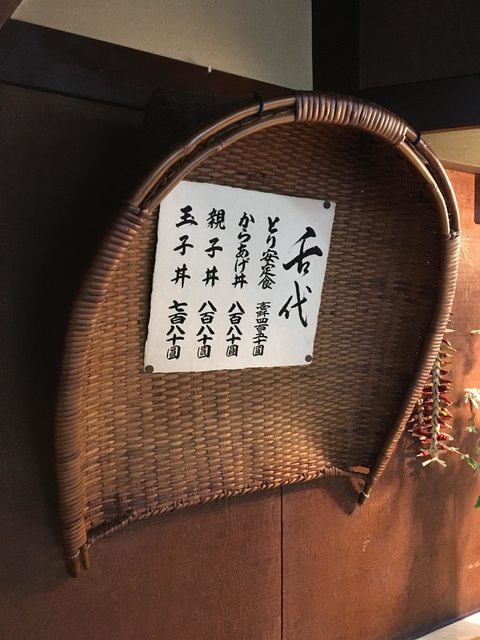 舌代
とり安定食 壱阡四百五十圓
からあげ丼 八百八十圓
親子丼 八百八十圓
玉子丼 七百八十圓